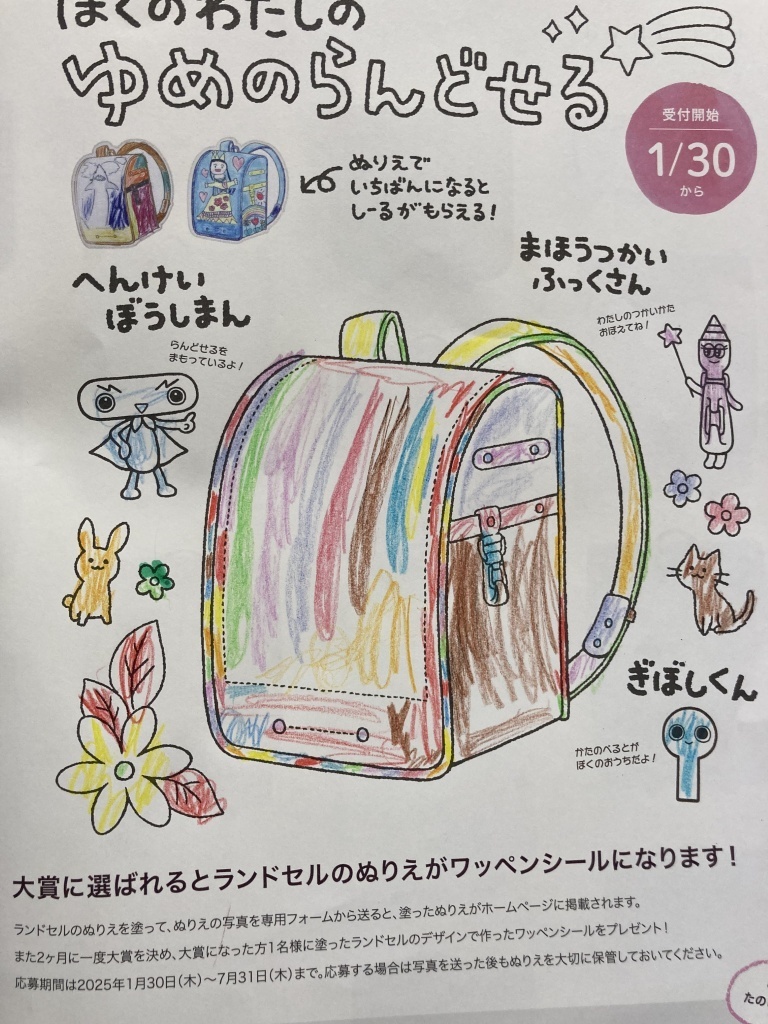 ぼくのわたしの
ゆめのらんどせる
受付開始
1/30
から
ぬりえで
いちばんになると
しーるがもらえる!
へんけい
ぼうしまん
らんどせるを
まもっているよ!
まほうつかい
ふっくさん
わたしのつかいかた
おぼえてね!
ぎぼしくん
かたのべるとが
ぼくのおうちだよ!
大賞に選ばれるとランドセルのぬりえがワッペンシールになります!
ランドセルのぬりえを塗って、ぬりえの写真を専用フォームから送ると、塗ったぬりえがホームページに掲載されます。
また2ヶ月に一度大賞を決め、大賞になった方1名様に塗ったランドセルのデザインで作ったワッペンシールをプレゼント!
応募期間は2025年1月30日(木)~7月31日(木)まで。応募する場合は写真を送った後もぬりえを大切に保管しておいてください。